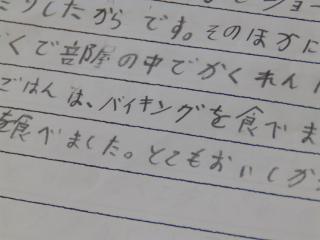 りしたからです。そのほかに
くで部屋の中でかくれん
ごはんは、バイキングを食べま
を食べました。とてもおいしか